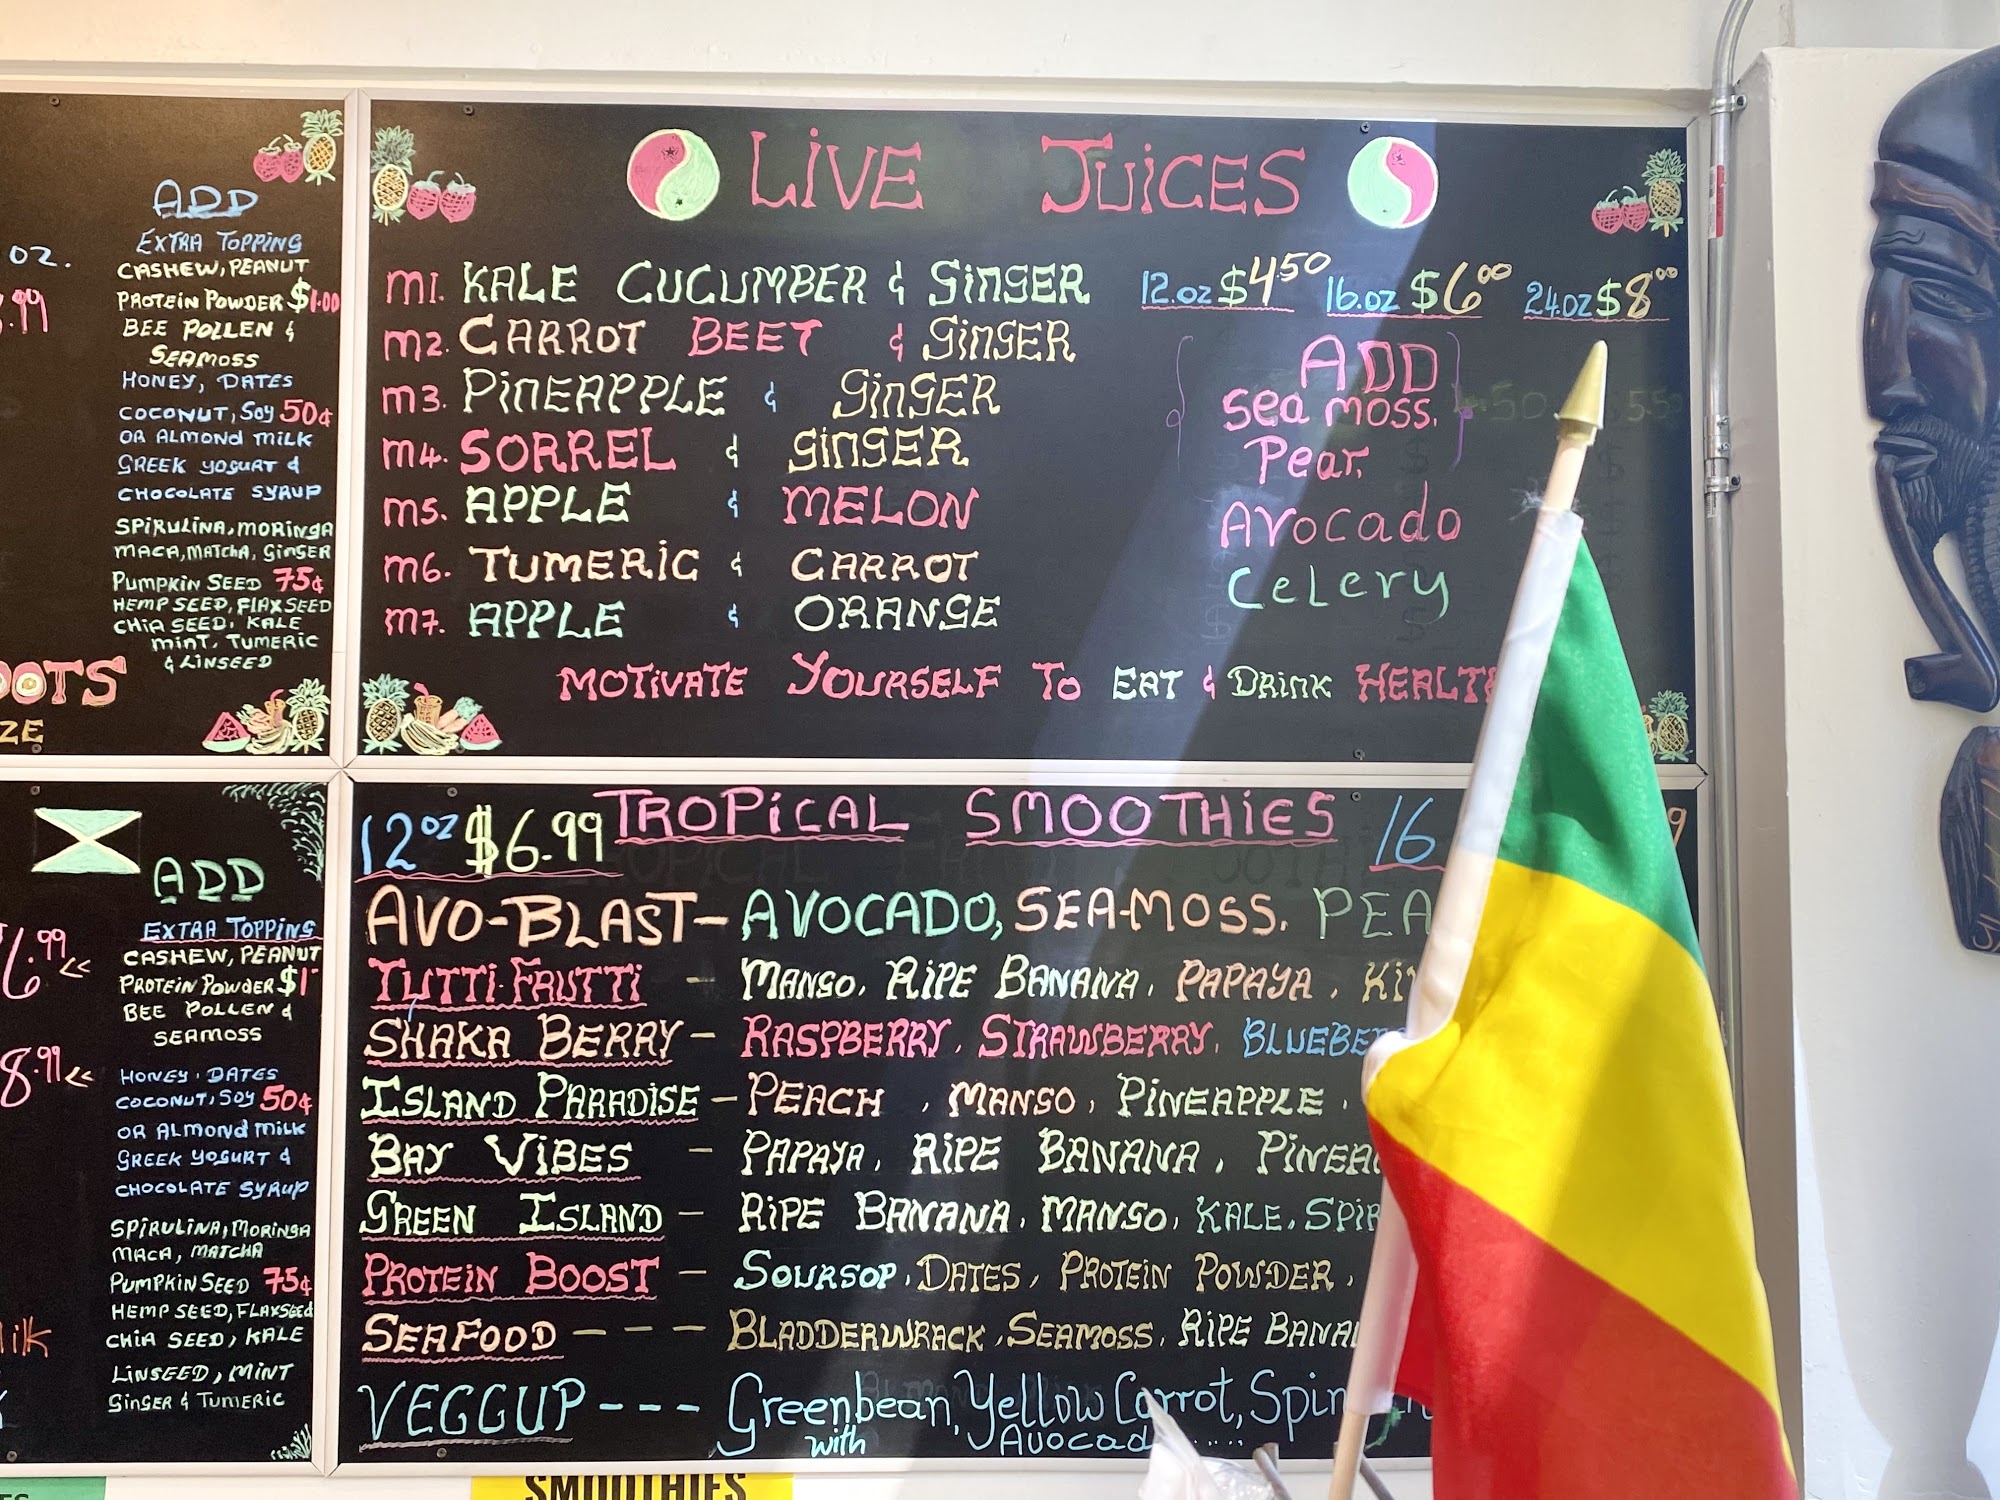 ADD
EXTRA TOPPING
CASHEW, PEANUT
PROTEIN POWDER $1.00
BEE POLLEN &
SEAMOSS
HONEY, DATES
COCONUT, SOY 50¢
OR ALMOND MILK
GREEK YOGURT &
CHOCOLATE SYRUP
SPIRULINA, MORINGA
MACA, MATCHA, GINGER
PUMPKIN SEED 75¢
HEMP SEED, FLAXSEED
CHIA SEED, KALE
MINT, TUMERIC
& LINSEED
OZ.
.99
OOTS
ZE
LIVE JUICES
M1. KALE CUCUMBER & GINGER 12.OZ $4.50 16.OZ $6.00 24.OZ $8.00
M2. CARROT BEET & GINGER
M3. PINEAPPLE & GINGER
M4. SORREL & GINGER
M5. APPLE & MELON
M6. TUMERIC & CARROT
M7. APPLE & ORANGE
ADD
Sea moss.
Pear.
Avocado
Celery
MOTIVATE YOURSELF TO EAT & DRINK HEALTH
ADD
EXTRA TOPPING
CASHEW, PEANUT
PROTEIN POWDER $1
BEE POLLEN &
SEAMOSS
HONEY, DATES
COCONUT, SOY 50¢
OR ALMOND MILK
GREEK YOGURT &
CHOCOLATE SYRUP
SPIRULINA, MORINGA
MACA, MATCHA
PUMPKIN SEED 75¢
HEMP SEED, FLAXSEED
CHIA SEED, KALE
LINSEED, MINT
GINGER & TUMERIC
6.99 <<
8.99 <<
ilk
12 oz $6.99 TROPICAL SMOOTHIES 16 9
AVO-BLAST - AVOCADO, SEA-MOSS. PEA
TUTTI-FRUTTI - MANGO, RIPE BANANA, PAPAYA, KI
SHAKA BERRY - RASPBERRY, STRAWBERRY, BLUEBE
ISLAND PARADISE - PEACH, MANGO, PINEAPPLE,
BAY VIBES - PAPAYA, RIPE BANANA, PINEA
GREEN ISLAND - RIPE BANANA, MANGO, KALE, SPIR
PROTEIN BOOST - SOURSOP, DATES, PROTEIN POWDER,
SEAFOOD --- BLADDERWRACK, SEAMOSS, RIPE BANA
VEGGUP --- Greenbean, Yellow Carrot, Spin
with Avocad
SMOOTHIES